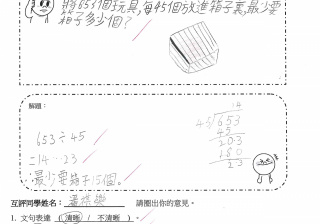 將653個玩具,每45個放進箱子裏,最少要
箱子多少個?
解題:
653÷45
=14…23
最少要箱子15個。
14
45 653
45
203
180
23
互評同學姓名: 請圈出你的意見。
1. 文句表達 ( 清晰 / 不清晰 )。